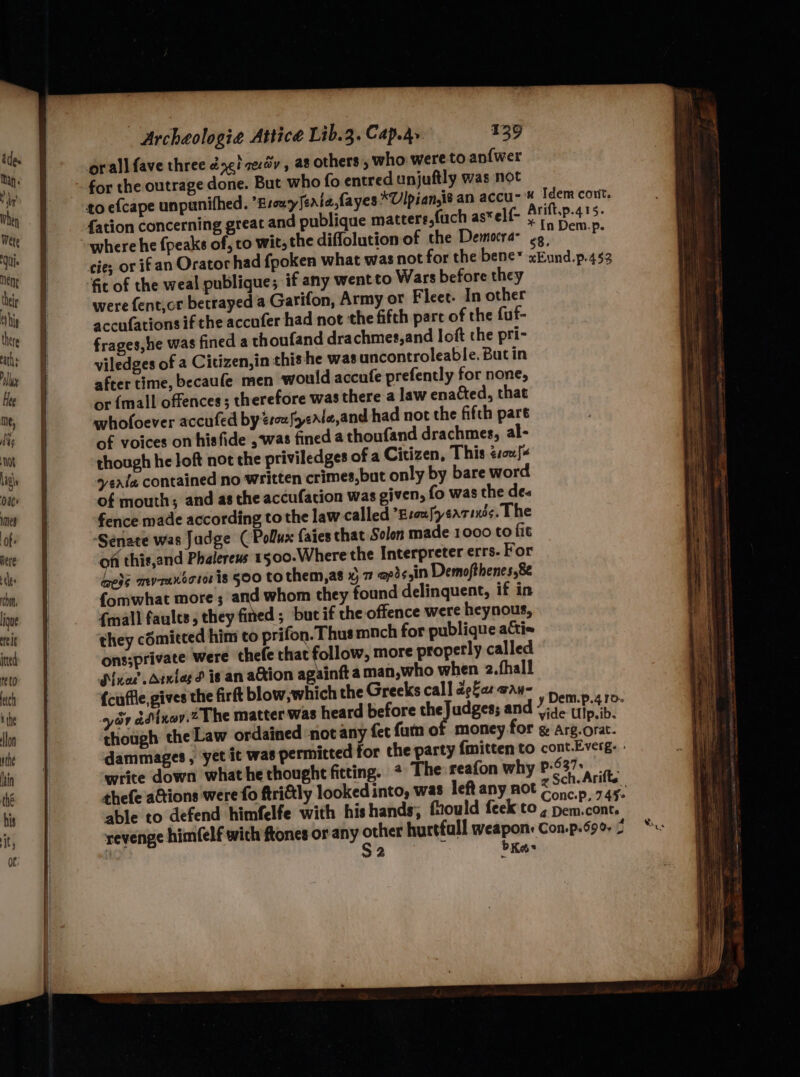 Archæologiæ Atticæ Lib.3. Cap.4. 139
or all ſave three
for the outrage done. But who ſo entred unjuſtly was not
to eſcape unpuniſhed. ſayes *Ulpian, is an accu-
ſation concerning great and publique matters, ſuch as * elſ-
where he ſpeaks of, to wit, the diſſolution of the Democra-
cie; or if an Orator had ſpoken what was not for the bene*
fit of the weal publique; if any went to Wars before they
were ſent, or betrayed a Gariſon, Army or Fleet. In other
accuſations if the accuſer had not the fifth part of the ſuf-
frages, he was fined a thouſand drachmes, and loſt the pri-
viledges of a Citizen, in this he was uncontroleable. But in
after time, becauſe men would accuſe preſently for none,
or ſmall offences; therefore was there a law enacted, that
whoſoever accuſed by and had not the fifth part
of voices on his ſide, was fined a thouſand drachmes, al-
though he loſt not the priviledges of a Citizen. This
contained no written crimes, but only by bare word
of mouth; and as the accuſation was given, ſo was the de-
fence made according to the law called The
Senate was Judge (Pollux ſaies that Solon made 1000 to ſit
on this, and Phalereus 1500. Where the Interpreter errs. For
is 500 to them, as in Demoſthenes, &
ſomwhat more; and whom they found delinquent, if in
ſmall faults, they fined; but if the offence were heynous,
they cõmitted him to priſon. Thus mnch for publique acti-
ons; private were theſe that follow, more properly called
is an action againſt a man, who when 2. ſhall
ſcuffle, gives the firſt blow, which the Greeks call
The matter was heard before the Judges; and
though the Law ordained not any ſet ſum of money for
dammages, yet it was permitted for the party ſmitten to
write down what he thought fitting. The reaſon why
theſe actions were ſo ſtrictly looked into, was left any not
able to defend himſelfe with his hands, ſhould ſeek to
revenge himſelf with ſtones or any other hurtfull weapon.
S 2
Idem cont.
Ariſt.p.415.
* In Dem.p.
58.
xEund.p.452
y Dem.p.410.
vide Ulp.ib.
& Arg.orat.
cont.Everg.
p.637.
z Sch. Ariſt.
Conc.p.745.
Dem.cont.
Con.p.690.